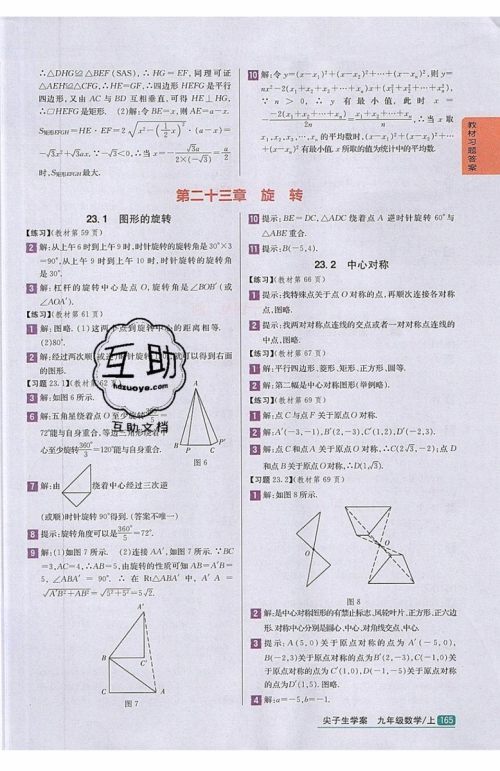 ∴△DHG≌△BEF(SAS),∴HG=EF,同理可证
△AEH≌△CFG,∴HE=GF,∴四边形HEFG是平行
四边形,又由AC与BD互相垂直,可得HE⊥HG,
∴□HEFG是矩形. (2)解:令BE=x,则AE=a-x.
S矩形EFGH=HE·EF=2√(x²-(1/2 x)²)·(a-x)=
-√3x²+√3ax.∵-√3<0,∴当x=-√3a/(2×(-√3))=a/2
时,S矩形EFGH最大.
10 解:令y=(x-x₁)²+(x-x₂)²+…+(x-xₙ)²,则y=
nx²-2(x₁+x₂+…+xₙ)x+(x₁²+x₂²+…+xₙ²),
∵n>0,∴y有最小值,此时x=
-(-2(x₁+x₂+…+xₙ))/2n=(x₁+x₂+…+xₙ)/n,∴当x取
x₁,x₂,x₃,…,xₙ的平均数时,(x-x₁)²+(x-x₂)²+…
+(x-xₙ)²有最小值.x所取的值为统计中的平均数.
教材习题答案
第二十三章 旋 转
23.1 图形的旋转
【练习】(教材第59页)
2 解:从上午6时到上午9时,时针旋转的旋转角是30°×3
=90°,从上午9时到上午10时,时针旋转的旋转角
是30°.
3 解:杠杆的旋转中心是点O,旋转角是∠BOB′(或
∠AOA′).
【练习】(教材第61页)
1 解:图略.(1)这两个点到旋转中心的距离相等.
(2)80°.
2 解:经过两次顺(或逆)时针旋转就可以得到右面
的图形.
【习题23.1】(教材第62页)
3 解:如图6所示.
6 解:五角星绕着点O至少旋转360°/5=
72°能与自身重合,等边三角形绕着中
心至少旋转360°/3=120°能与自身重合.
A
B P C P′
图6
7 解:由 绕着中心经过三次逆
(或顺)时针旋转90°得到.(答案不唯一)
8 提示:旋转角度可以是360°/5=72°.
9 解:(1)如图7所示. (2)连接AA′,如图7所示.∵BC
=3,AC=4,∴AB=5,由旋转的性质可知AB=A′B=
5,∠ABA′=90°.∴在Rt△ABA′中,A′A=
√(A′B²+AB²)=√(5²+5²)=5√2.
A′
C′
B
C A
图7
互助
hdzuoye.com
互助文档
10 提示:BE=DC,△ADC绕着点A逆时针旋转60°与
△ABE重合.
11 提示:B(-5,4).
23.2 中心对称
【练习】(教材第66页)
1 提示:找特殊点关于点O对称的点,再顺次连接各对称
点,图略.
2 提示:找两对对称点连线的交点或者一对对称点连线的
中点,图略.
【练习】(教材第67页)
1 解:平行四边形、菱形、矩形、正方形、圆等.
2 解:第二幅是中心对称图形(举例略).
【练习】(教材第69页)
1 解:点C与点F关于原点O对称.
2 解:A′(-3,-1),B′(2,-3),C′(1,2),D′(-2,3).
3 解:点C和点A关于原点O对称,∴C(2√3,-2);点D
和点B关于原点O对称,∴D(1,√3).
【习题23.2】(教材第69页)
1 解:如图8所示.
图8
2 解:是中心对称图形的有禁止标志、风轮叶片、正方形、正六边
形.对称中心分别是圆心、中心、对角线交点、中心.
3 提示:A(5,0)关于原点对称的点为A′(-5,0),
B(-2,3)关于原点对称的点为B′(2,-3),C(-1,0)关
于原点对称的点为C′(1,0),D(-1,-5)关于原点对称
的点为D′(1,5).图略.
4 解:a=-5,b=-1.
尖子生学案 九年级数学/上 165